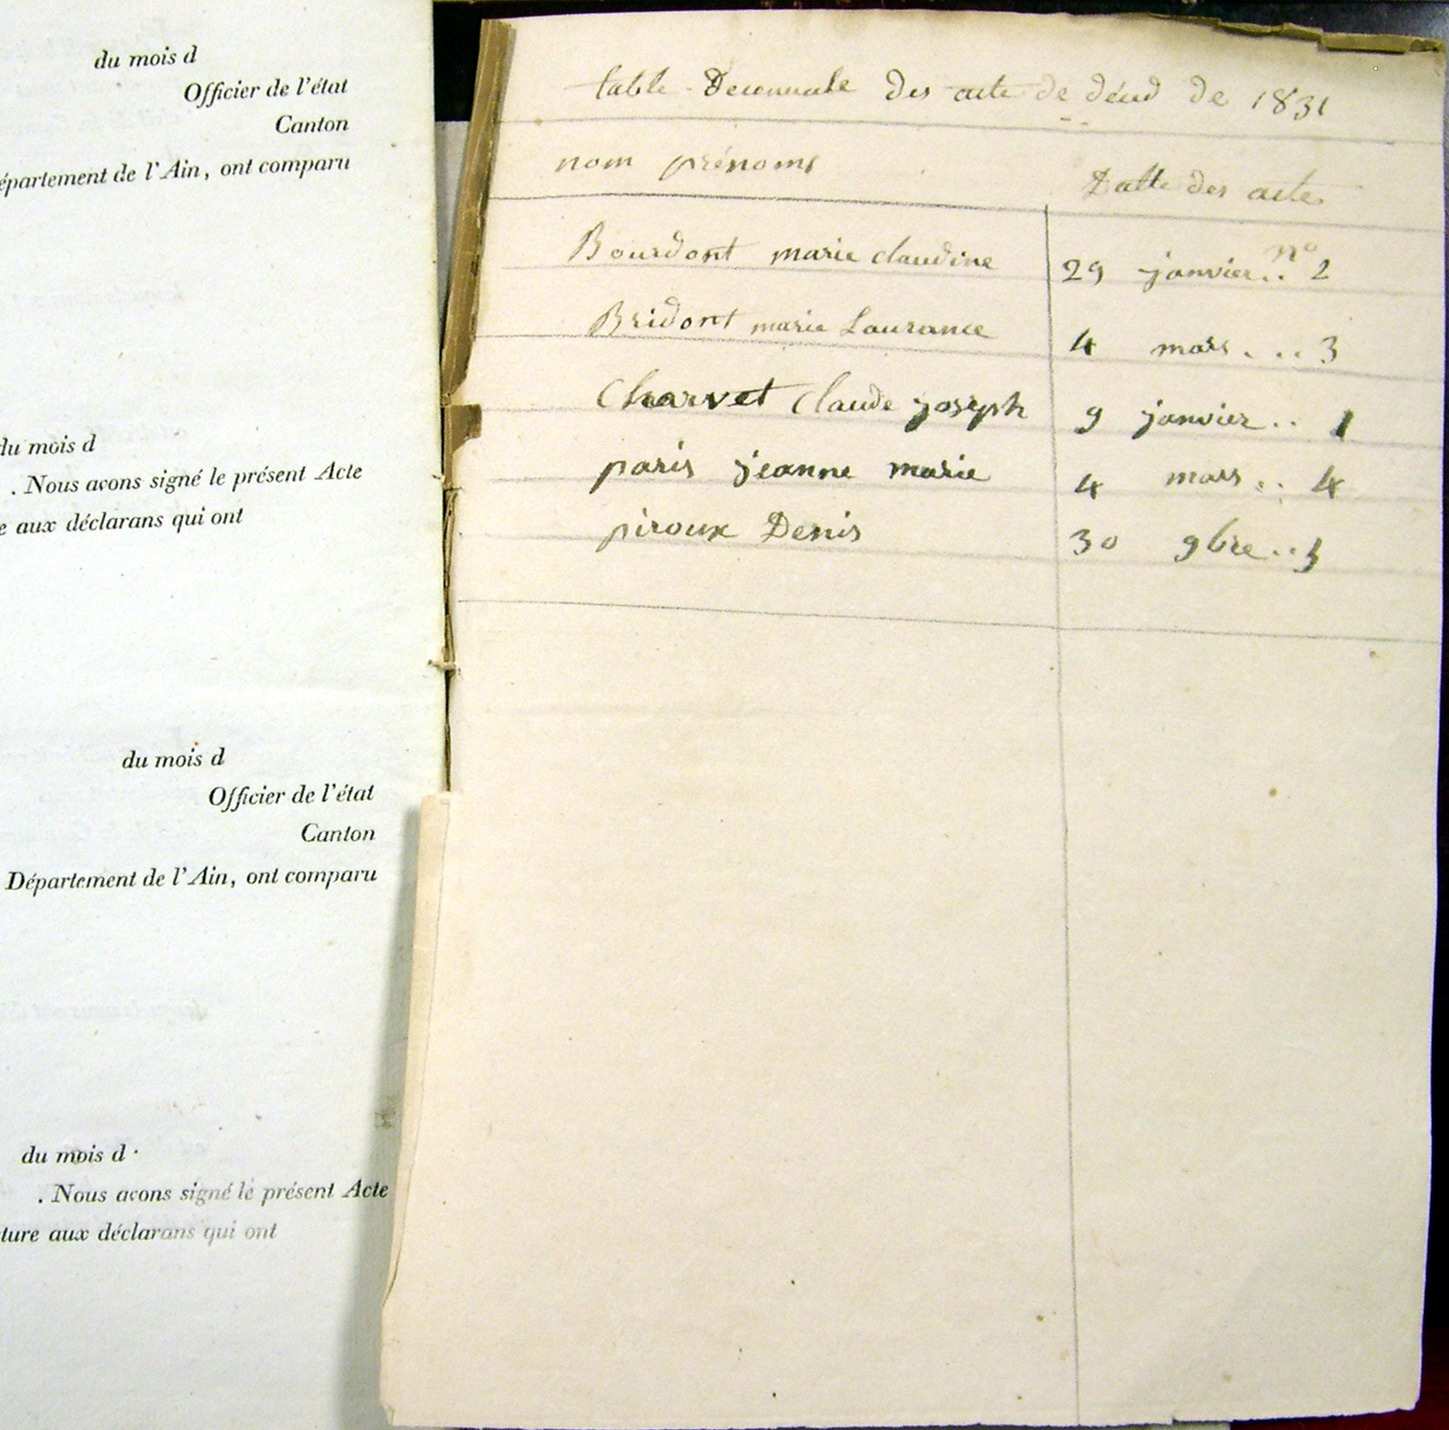 du mois d
Officier de l'état
Canton
épartement de l'Ain, ont comparu
du mois d
. Nous avons signé le présent Acte
e aux déclarans qui ont
du mois d
Officier de l'état
Canton
Département de l'Ain, ont comparu
du mois d
. Nous avons signé le présent Acte
ture aux déclarans qui ont
table Decennale des acte de décèd de 1831
nom prénoms Datte des actes
Bourdont marie claudine 29 janvier .. n° 2
Bridont marie Laurance 4 mars . .. 3
Charvet Claude joseph 9 janvier .. 1
paris jeanne marie 4 mars .. 4
piroux Denis 30 9bre .. 5